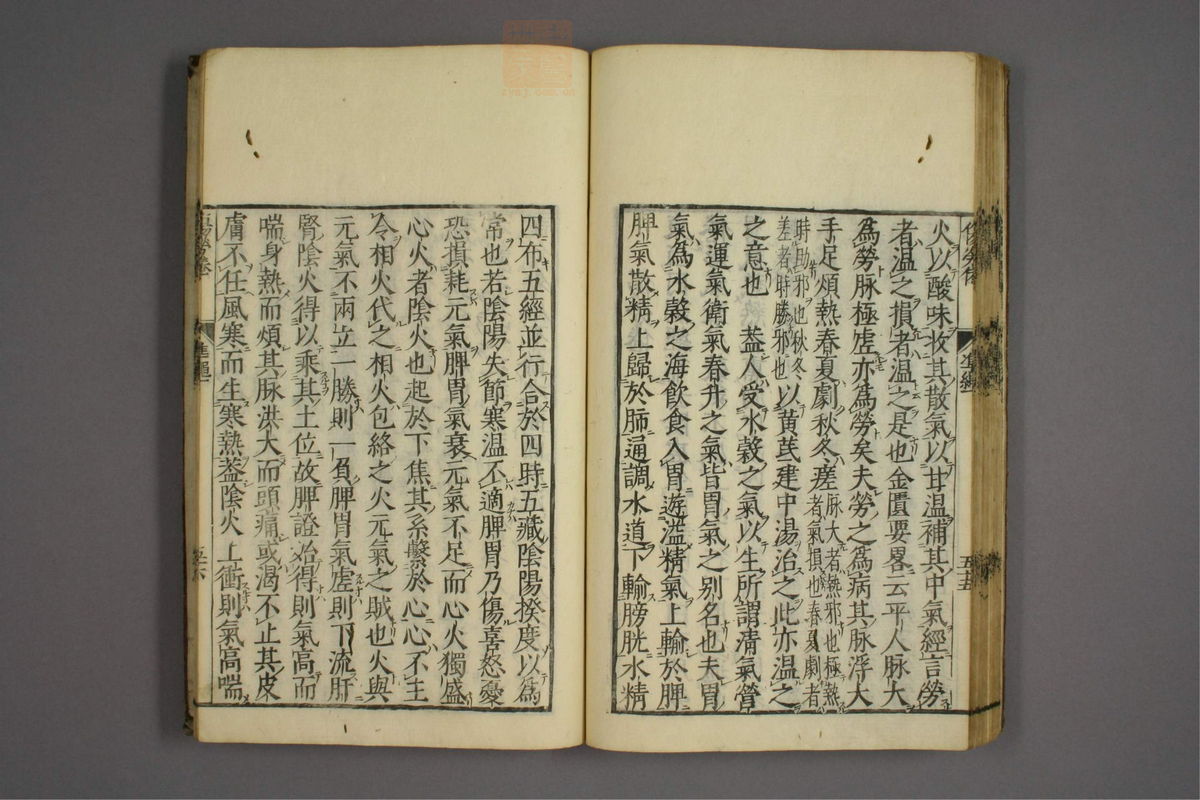 火以酸味收其散氣以甘溫補其中氣經言勞
者溫之損者溫之是也金匱要畧云平人脉大
爲勞脉極虛亦爲勞矣夫勞之爲病其脉浮大
手足煩熱春夏劇秋冬瘥脉大者熱邪也極熱者氣損也春夏劇者
時助邪也秋冬差者時勝邪也以黃芪建中湯治之此亦溫之
之意也 葢人受水穀之氣以生所謂清氣營
氣運氣衛氣春升之氣皆胃氣之别名也夫胃
氣爲水穀之海飲食入胃遊溢精氣上輸於脾
脾氣散精上歸於肺通調水道下輸膀胱水精
五十五
四布五經並行合於四時五藏陰陽揆度以爲
常也若陰陽失節寒溫不適脾胃乃傷喜怒憂
恐損耗元氣脾胃氣衰元氣不足而心火獨盛
心火者陰火也起於下焦其系繫於心心不主
令相火代之相火包絡之火元氣之賊也火與
元氣不兩立一勝則一負脾胃氣虛則下流肝
腎陰火得以乘其土位故脾證始得則氣高而
喘身熱而煩其脉洪大而頭痛或渴不止其皮
膚不任風寒而生寒熱葢陰火上衝則氣高喘